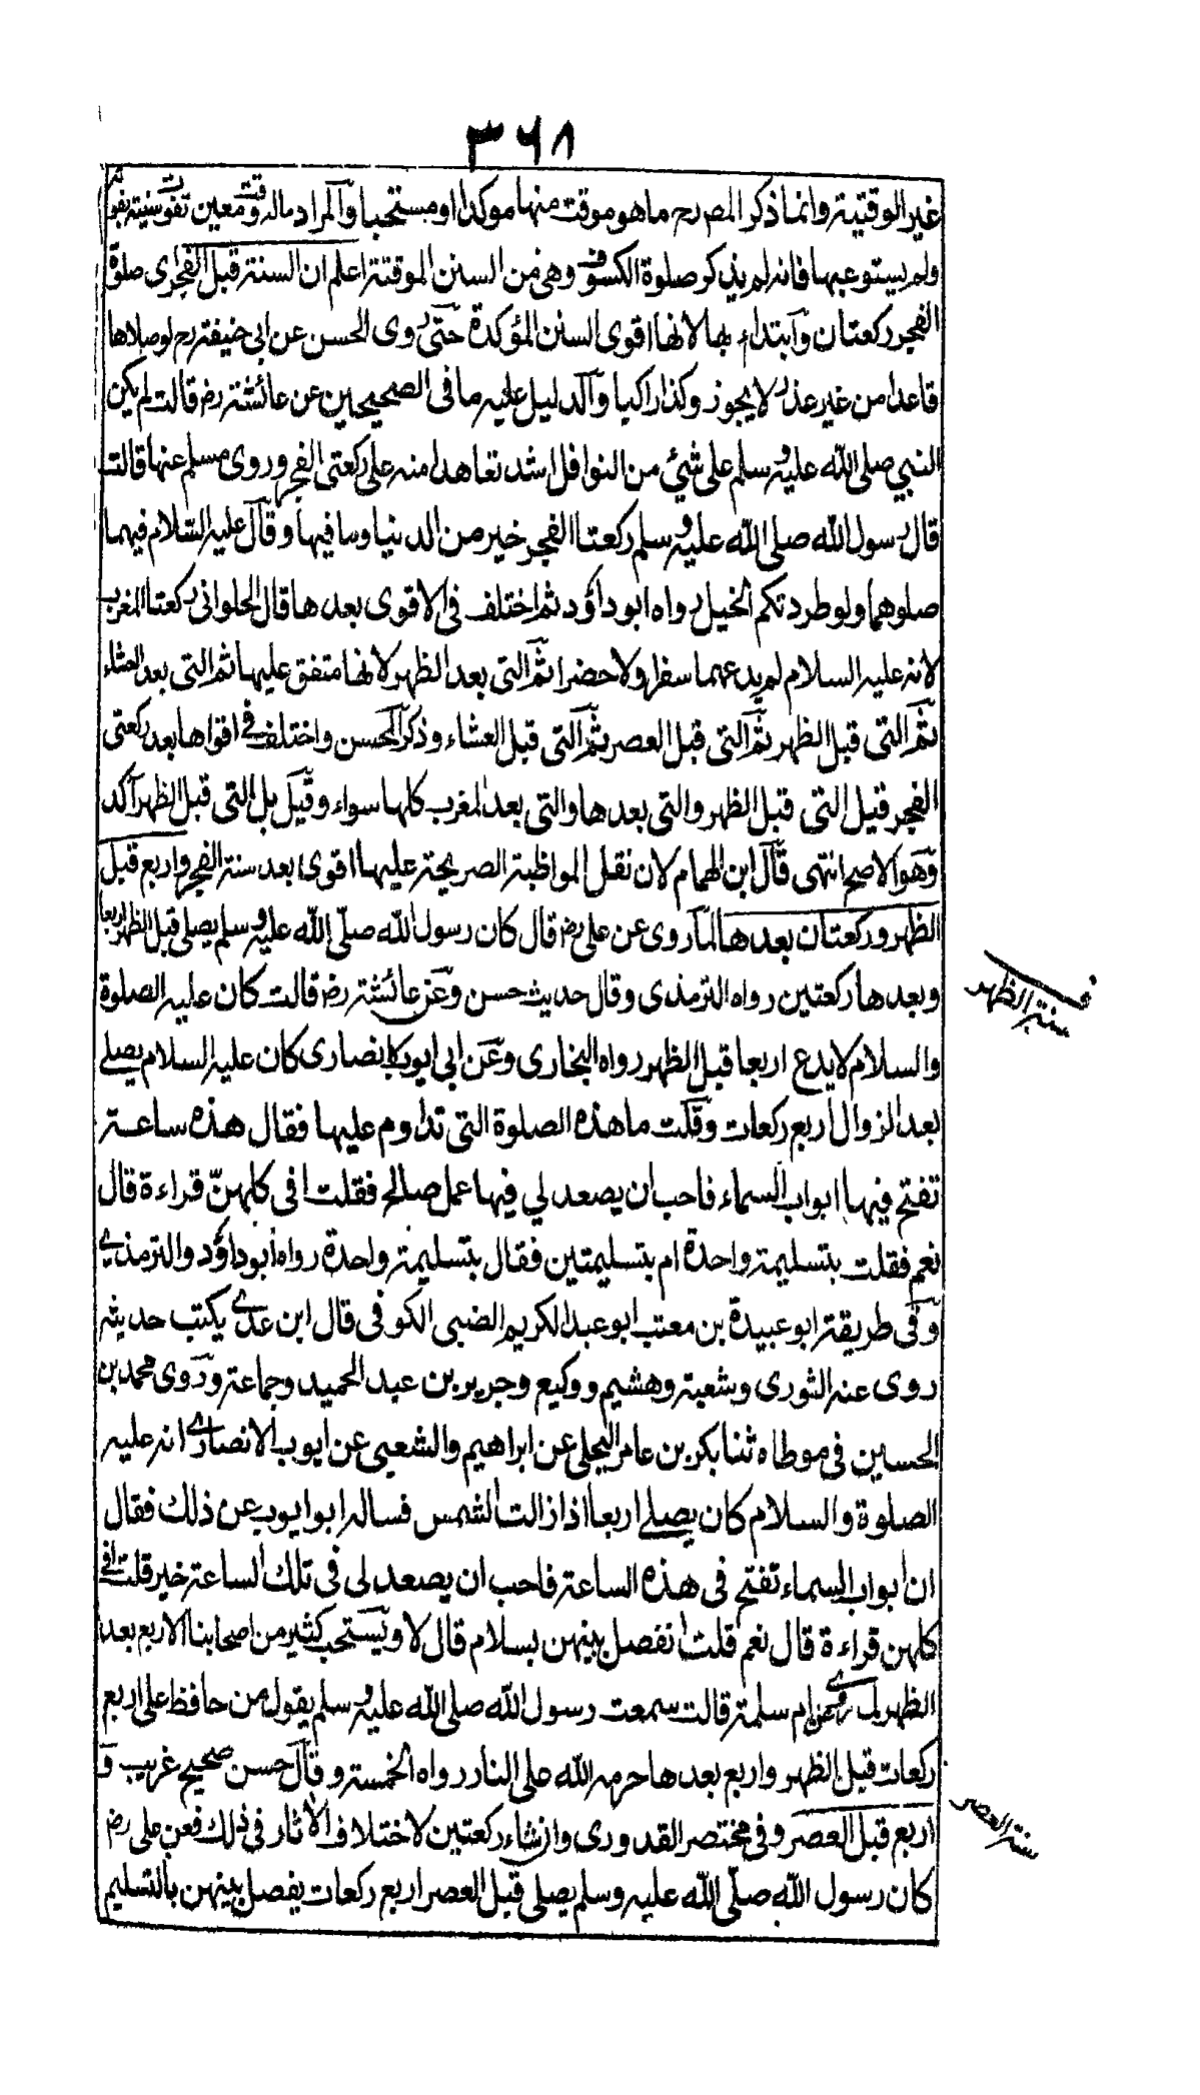 ٣٦٨
غير الوقتية وانما ذكر المص رح ما هو موقت منها موكدا او مستحبا وآلمراد ماله وقت معين تفوت سنيته بفوته
ولم يستوعبها فانه لم يذكر صلوة الكسوف وهى من السنن الموقتة اعلم ان السنة قبل الفجر اى صلوة
الفجر ركعتان وآبتداء بها لانها اقوى السنن المؤكدة حتى روى الحسن عن ابى حنيفة رح لو صلاها
قاعدا من غير عذر لا يجوز وكذا راكبا وآلدليل عليه ما فى الصحيحين عن عائشة رض قالت لم يكن
النبي صلى الله عليه وسلم على شئ من النوافل اشد تعاهدا منه على ركعتى الفجر وروى مسلم عنها قالت
قال رسول الله صلى الله عليه وسلم ركعتا الفجر خير من الدنيا وما فيها وقآل عليه السّلام فيهما
صلوهما ولو طردتكم الخيل رواه ابو داؤد ثم اختلف فى الاقوى بعدها قال الحلوانى ركعتا المغرب
لانه عليه السلام لم يدعهما سفرا ولا حضرا ثم آلتى بعد الظهر لانها متفق عليها ثم التى بعد العشاء
ثم آلتى قبل الظهر ثم آلتى قبل العصر ثم آلتى قبل العشاء وذكر آلحسن واختلف فى اقواها بعد ركعتى
الفجر قيل التى قبل الظهر والتى بعدها والتى بعد المغرب كلها سواء وقيل بل التى قبل الظهر آكد
وهو الاصح انتهى قآل ابن الهمام لان نقل المواظبة الصريحة عليها اقوى بعد سنة الفجر واربع قبل
الظهر وركعتان بعدها لما روى عن على رض قال كان رسول الله صلّى الله عليه وسلم يصلى قبل الظهر اربعا
وبعدها ركعتين رواه الترمذى وقال حديث حسن وعن عائشة رض قالت كان عليه الصلوة
والسلام لا يدع اربعا قبل الظهر رواه البخارى وعن ابى ايوب الانصارى كان عليه السلام يصلے
بعد الزوال اربع ركعات وقلت ما هذه الصلوة التى تداوم عليها فقال هذه ساعة
تفتح فيها ابواب السماء فاحب ان يصعد لي فيها عمل صالح فقلت افى كلهنّ قراءة قال
نعم فقلت بتسليمة واحدة ام بتسليمتين فقال بتسليمة واحدة رواه ابو داؤد والترمذے
وفى طريقة ابو عبيدة بن معتب ابو عبد الكريم الضبى الكوفى قال ابن عدے يكتب حديثه
روى عنه الثورى وشعبة وهشيم ووكيع وجرير بن عبد الحميد وجماعة وروى محمد بن
الحسين فى موطاه ثنا بكر بن عامر البجلى عن ابراهيم والشعبى عن ايوب الانصارے انه عليه
الصلوة والسلام كان يصلے اربعا اذا زالت الشمس فساله ابو ايوب عن ذلك فقال
ان ابواب السماء تفتح فى هذه الساعة فاحب ان يصعد لى فى تلك الساعة خير قلت افى
كلهن قراءة قال نعم قلت انفصل بينهن بسلام قال لا ويستحب كثير من اصحابنا الاربع بعد
الظهر لما روى عن ام سلمة قالت سمعت رسول الله صلى الله عليه وسلم يقول من حافظ على اربع
ركعات قبل الظهر واربع بعدها حرمه الله على النار رواه الخمسة وقآل حسن صحيح غريب و
اربع قبل العصر وفى مختصر القدورى وان شاء ركعتين لاختلاف الآثار فى ذلك فعن على رض
كان رسول الله صلّى الله عليه وسلم يصلى قبل العصر اربع ركعات يفصل بينهن بالتسليم
ف سنة الظهر
سنة العصر